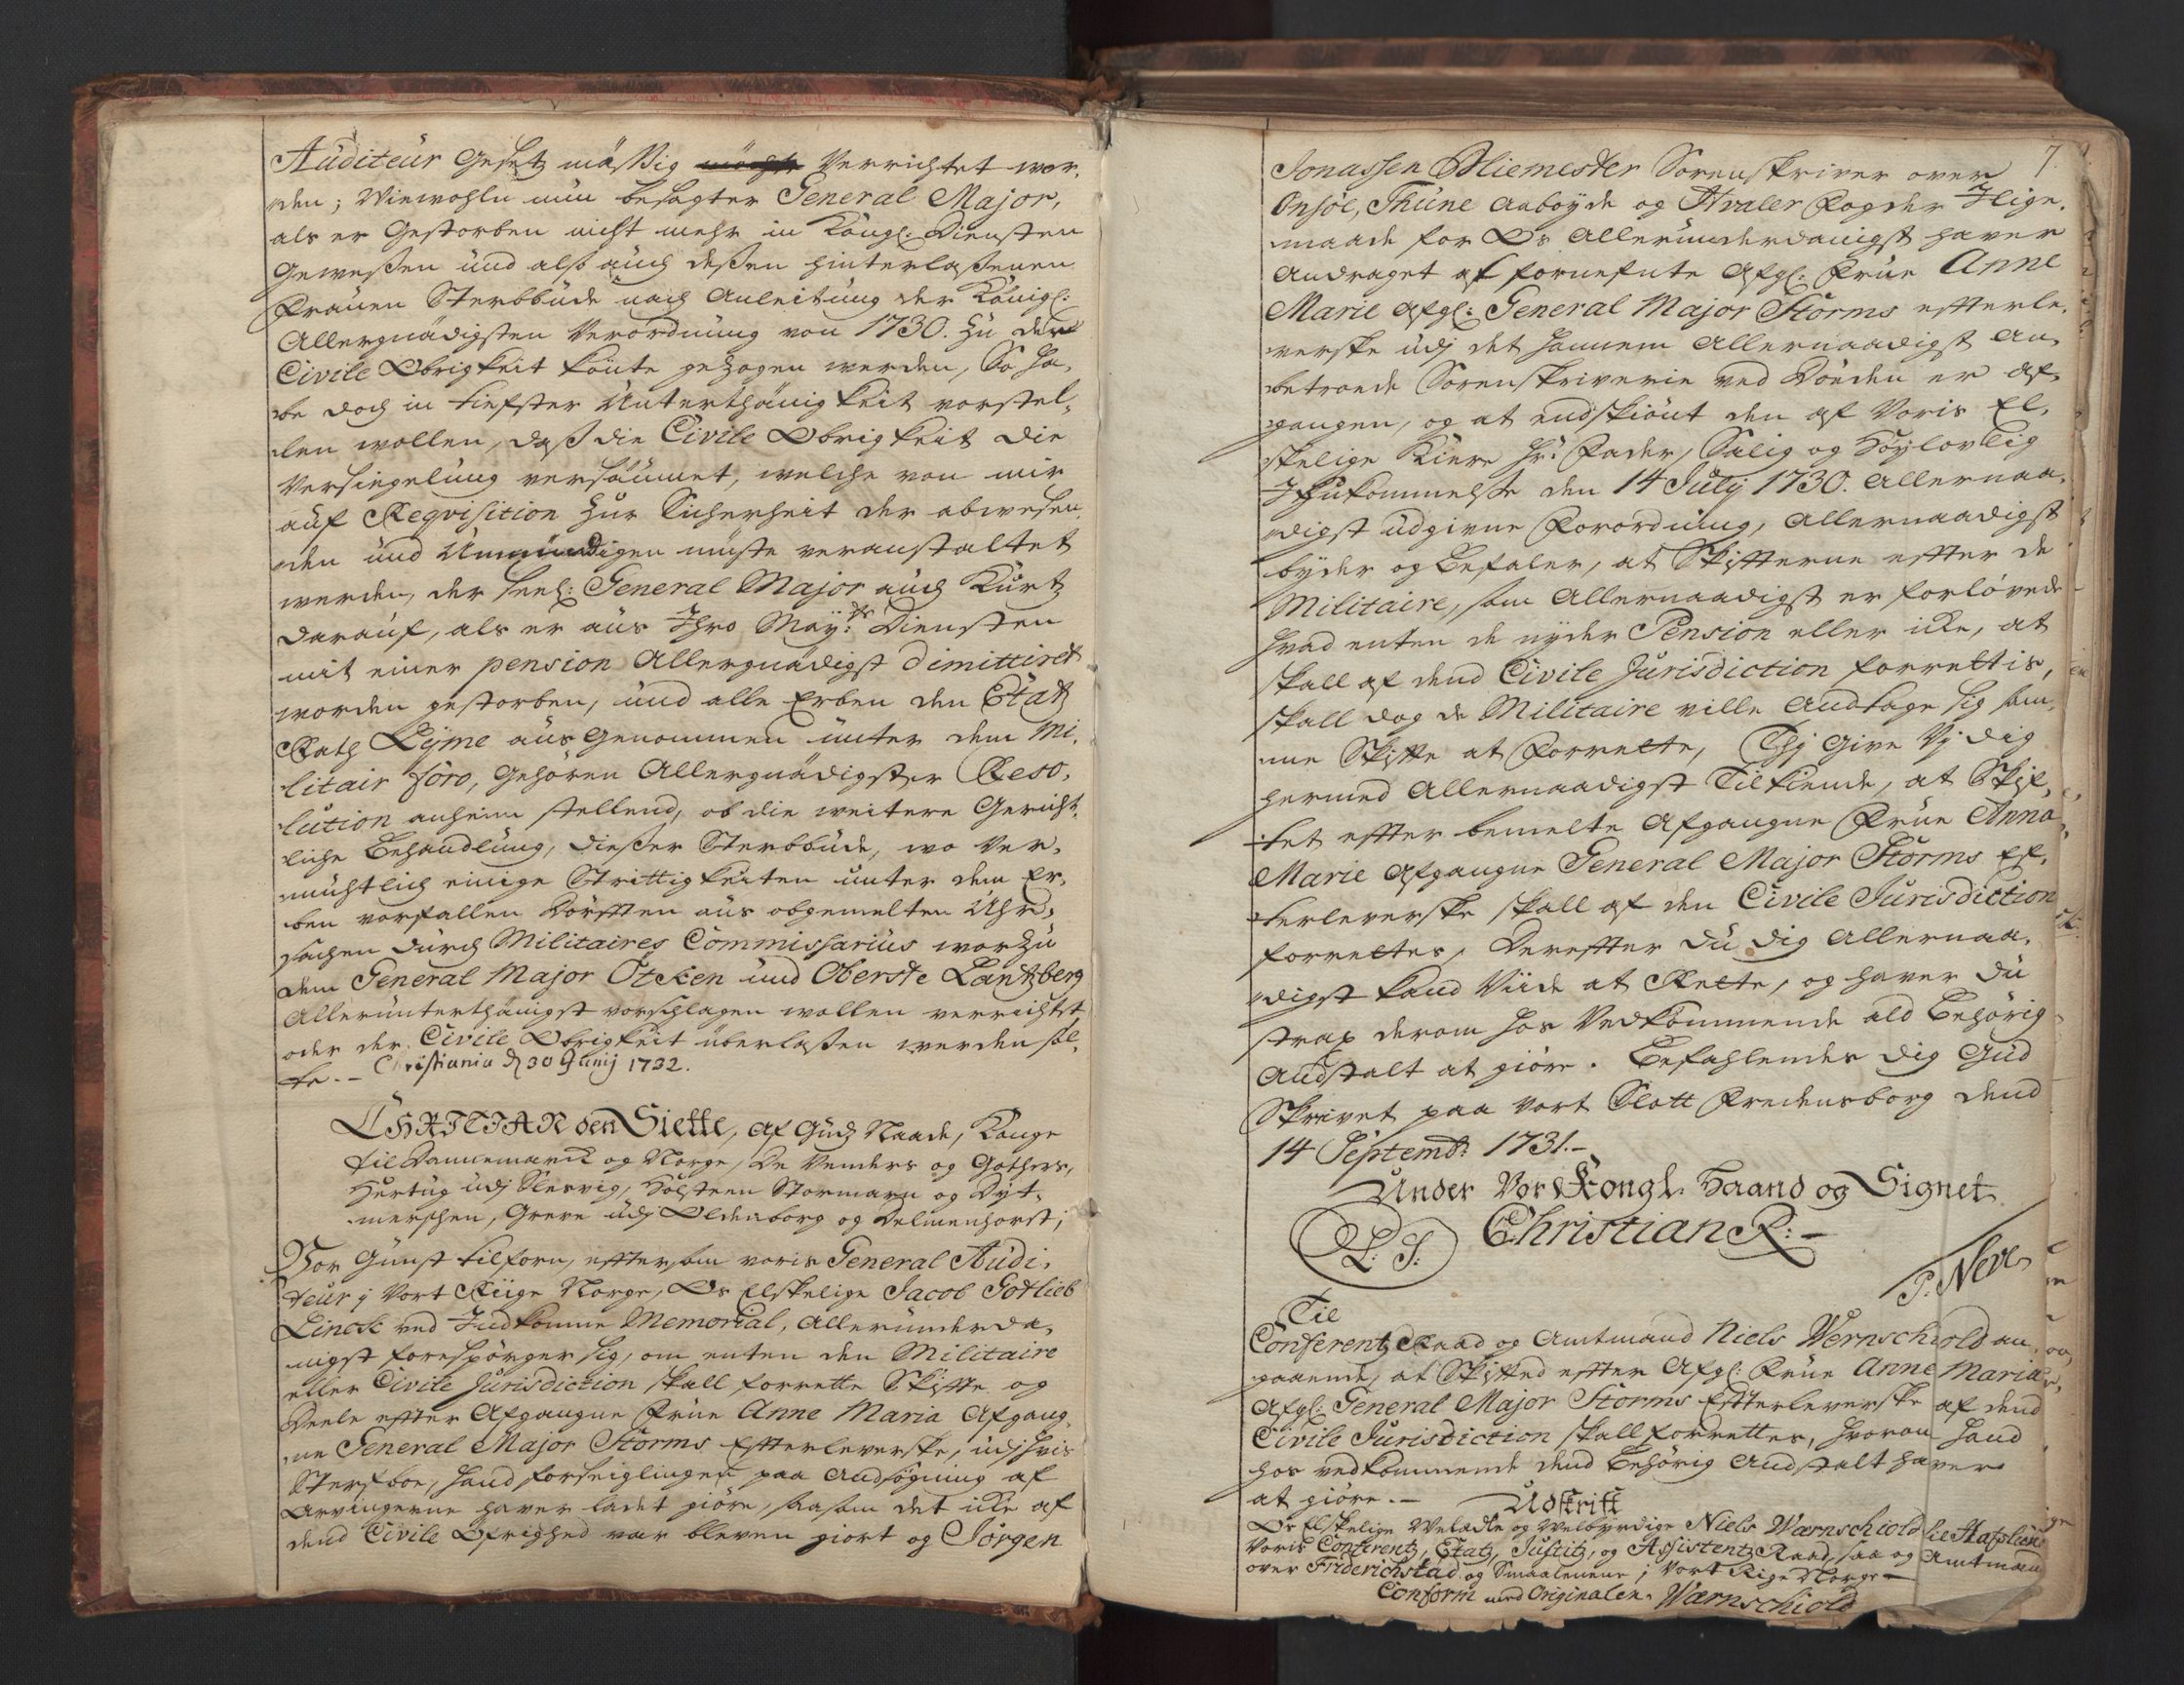 Auditeur Gesetz mässig Verrichtet wor-
den; Wiewohln nun besagter General Major,
als er Gestorben nicht mehr in Köngl: Diensten
Geweßen und also auch deßen hinterlaßenen
Frauen Sterbbude nach Anleitung der Königl:
Allergnädigsten Verordnung von 1730. Zu der
Civile Obrigkeit könte gezogen werden, So ha-
be doch in tiefster Unterthänigkeit vorstel-
len wollen, daß die Civile Obrigkeit die
Versiegelung versäumet, welche von mir
auf Reqvisition Zur Sicherheit der abwesen-
den und Unmündigen müste veranstaltet
werden, der seel: General Major auch Kurtz
darauf, als er aus Ihro May:ts Diensten
mit einer pension Allergnädigst dimittiret
worden gestorben, und alle Erben den Etatz
Rath Lÿme aus Genommen unter dem Mi-
litair foro, Gehören Allergnädigster Reso-
lution anheim stellend, ob die weitere Gericht-
liche Behandlung, dießer Sterbbude, wo Ver-
muhtlich einige Strittigkeiten unter dem Er-
ben vorfallen dörfften aus obgemelten Uhr-
sachen durch Militaires Commissarius worzu
dem General Major Otken und Oberste Lantzberg
Allerunterthänigst vorschlagen wollen verrichtet
oder der Civile Obrigkeit überlaßen werden sol-
te. - Christiania d 30 Junij 1732.
CHRISTIAN den Siette, af Guds Naade, Konge
til Dannemarck og Norge, De Venders og Gothers,
Hertug udj Slesvig, Holsteen Stormarn og Dyt-
merschen, Greve udj Oldenborg og Delmenhorst;
Vor Gunst tilforn, eftersom voris General Audi-
teur j Vort Riige Norge, Os Elskelige Jacob Gotlieb
Linck ved Indkomne Memorial, Allerunderda-
nigst forespörger sig, om enten den Militaire
eller Civile Jurisdiction skall forrette Skifte og
Deele efter Afgangne Frue Anne Maria Afgang-
ne General Major Storms Efterleverske, udj hvis
Sterfboe, hand forseiglingen paa Ansögning af
Arvingerne haver ladet giöre, saasom det icke af
dend Civile Öfrighed var bleven giort og Jörgen
7.
Jonassen Bliemester Sorenskriver over
Onsöe, Thune Aaböyde og Hvaler Fogder Ilige-
maade for Os Allerunderdanigst haver
Andraget at fornefnte Afgl: Frue Anne
Marie Afgl: General Major Storms effterle-
verske udj det hannem Allernaadigst An-
betroede Sorenskriverie ved Döden er af-
gangen, og at endskiönt den af Voris El-
skelige Kiere Hr: Fader, Salig og Höylovlig
Ihukommelse den 14 July 1730. Allernaa-
digst udgivne Forordning, Allernaadigst
byder og Befaler, at Skiffterne effter de
Militaire, som Allernaadigst er forlövede
hvad enten de nyder Pension eller icke, at
skall af dend Civile Jurisdiction forrettis,
skall dog de Militaire ville Andtage sig sam-
me Skifte at Forrette, Thj Give Vj dig
hermed Allernaadigst Tilkiende, at Skif-
tet effter bemelte Afgangne Frue Anna
Marie Afgangne General Major Storms Ef-
terleverske skall af den Civile Jurisdiction
forrettes, Dereffter du dig Allernaa-
digst kand Viide at Rette, og haver du
strax derom hos Vedkommende ald Behörig
Andstalt at giöre. Befahlendes dig Gud
Skrevet paa vort Slott Fredensborg dend
14 Septembr 1731.-
Under Vor Kongl. Haand og Signet
L: S: Christian R: -
P: Neve
Til
Conferentz Raad og Amtmand Niels Wernschiold an-
gaaende, at Skifted effter Afgl: Frue Anne Maria
Afgl: General Major Storms Effterleverske af dend
Civile Jurisdiction skall forrettes, hvorom hand
hos vedkommende dend Behörig Andstalt haver
at giöre. - Udskrift
Os Elskelige Velædle og Velbyrdige Niels Wærnschiold til Hafslund
Voris Conferentz, Etatz, Justitz, og Assistentz Raad, saa og Amtmand
over Friderichstad og Smaalenene j Vort Rige Norge -
Conform med Originalen. Wærnschiold